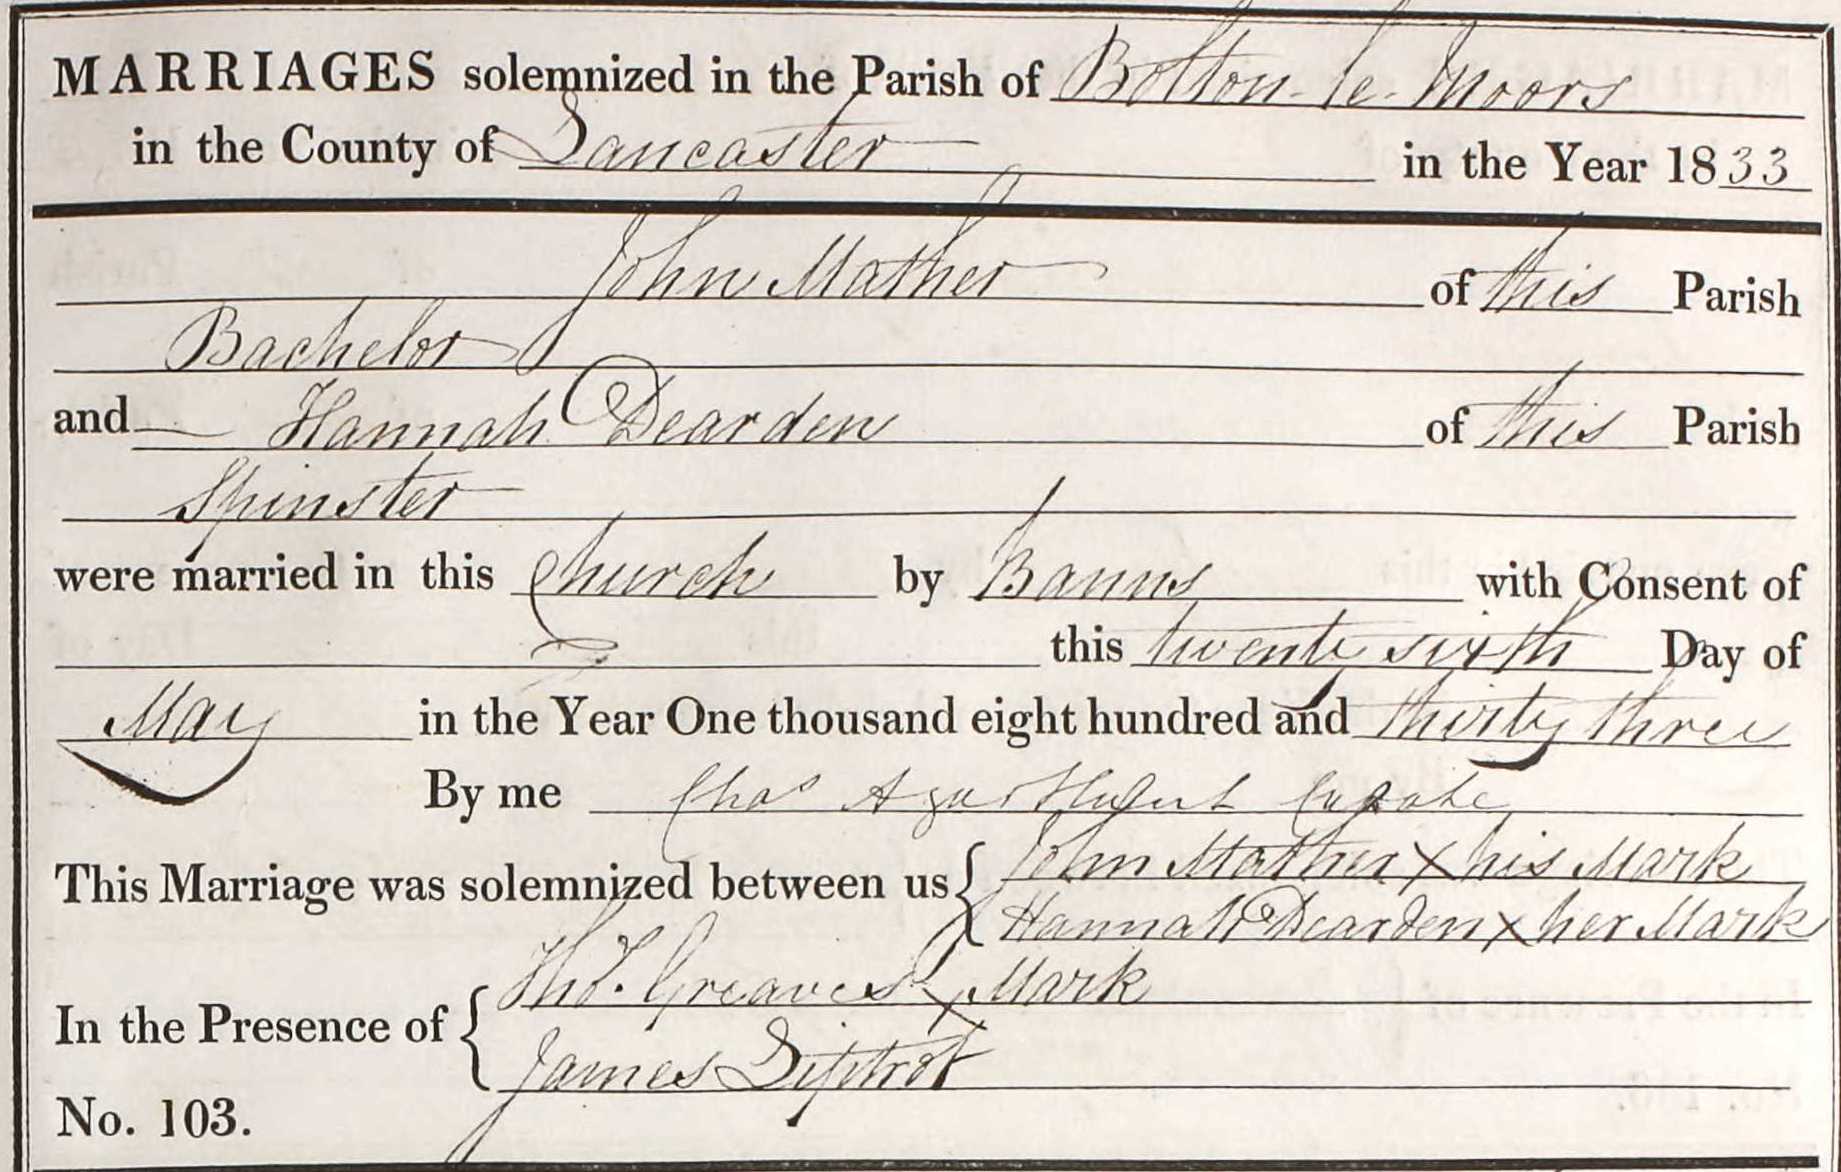 MARRIAGES solemnized in the Parish of Bolton-le-Moors
in the County of Lancaster in the Year 1833
John Mather of this Parish
Bachelor
and Hannah Dearden of this Parish
Spinster
were married in this Church by Banns with Consent of
this twenty sixth Day of
May in the Year One thousand eight hundred and thirty three
By me Chas Curate
This Marriage was solemnized between us { John Mather X his Mark
Hannah Dearden X her Mark
In the Presence of { Thos. Greaves X Mark
James Liptrot
No. 103.